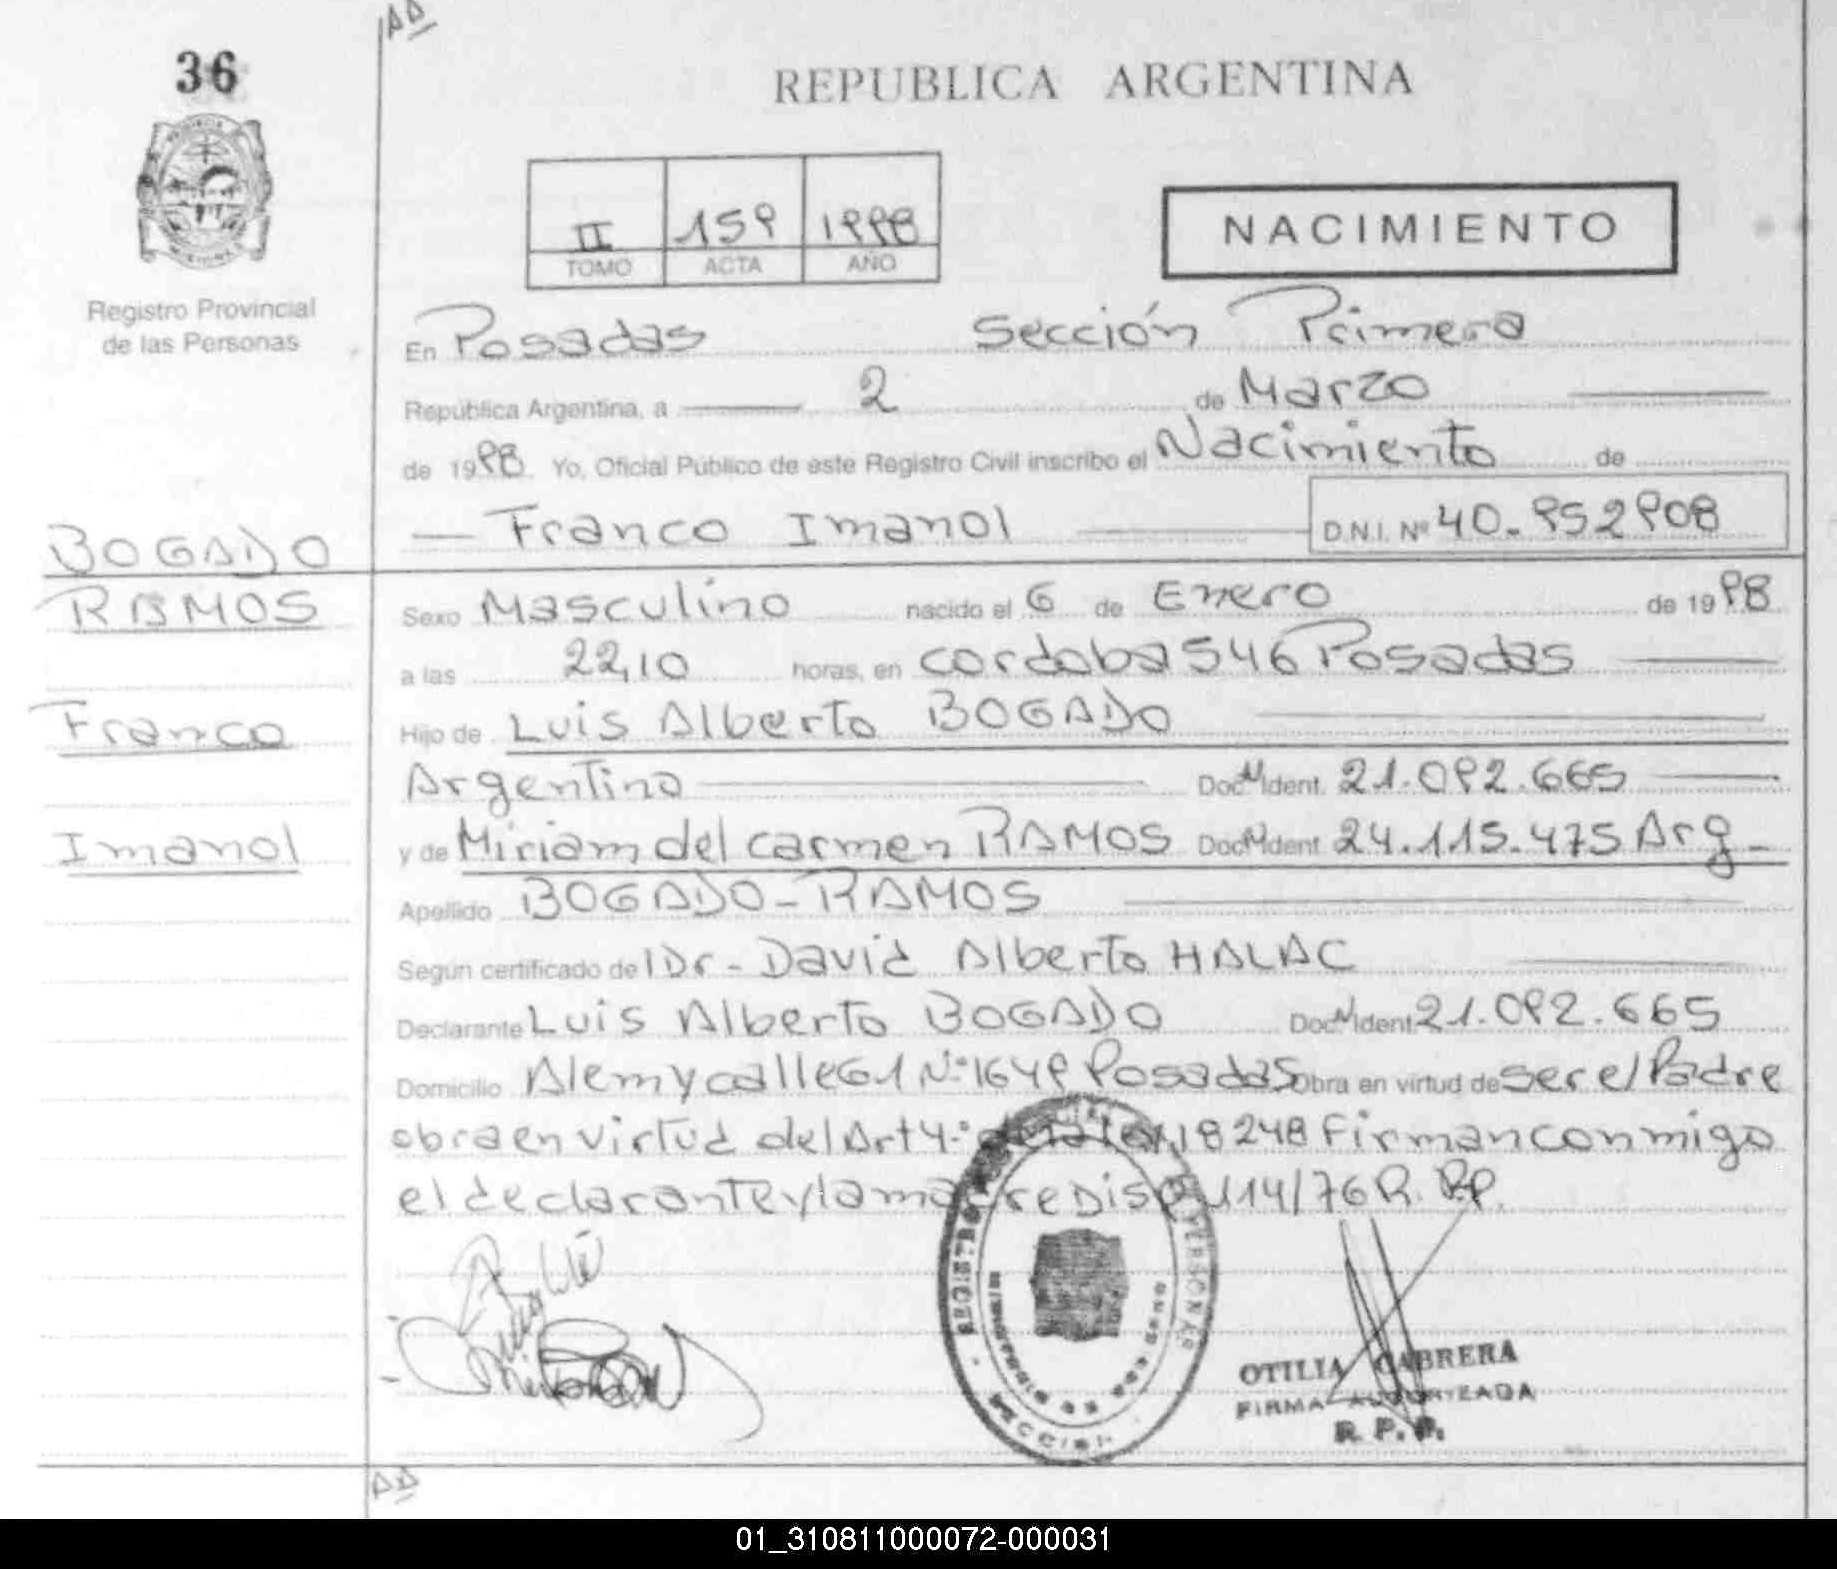 AD
36
REPUBLICA ARGENTINA
II 159 1998
TOMO ACTA AÑO
NACIMIENTO
Registro Provincial
de las Personas
En Posadas Sección Primera
República Argentina, a 2 de Marzo
de 1998 Yo, Oficial Público de este Registro Civil inscribo el Nacimiento de
Franco Imanol D.N.I. Nº 40.952908
BOGADO
RAMOS
Franco
Imanol
Sexo Masculino nacido el 6 de Enero de 1998
a las 22,10 horas, en cordoba 546 Posadas
Hijo de Luis Alberto BOGADO
Argentino Doc. Ident. 21.092.665
y de Miriam del carmen RAMOS Doc. Ident. 24.115.475 Arg-
Apellido BOGADO-RAMOS
Según certificado del Dr- David Alberto HALAC
Declarante Luis Alberto BOGADO Doc. Ident. 21.092.665
Domicilio Alem y calle 61 Nº 1649 Posadas Obra en virtud de ser el Padre
obra en virtud del Art 4º de la ley 18248 Firman conmigo
el declarante y la madre Disp 114/76 R. P.P.
OTILIA CABRERA
FIRMA AUTORIZADA
R. P. P.
AD
01_310811000072-000031